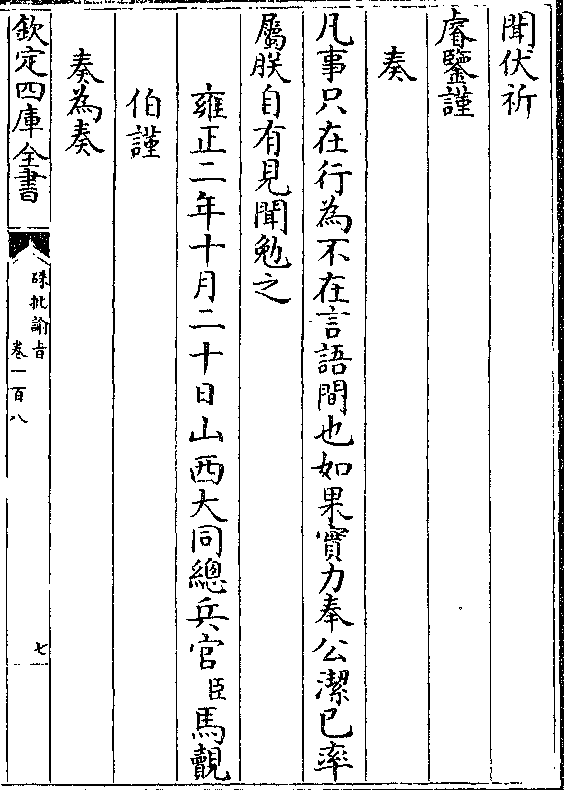 聞伏祈
睿鑒謹
奏
凡事只在行為不在言語間也如果實力奉公潔己率
屬朕自有見聞勉之
雍正二年十月二十日山西大同總兵官臣馬覿
伯謹
奏為奏
欽定四庫全書
硃批諭旨
卷一百八
七